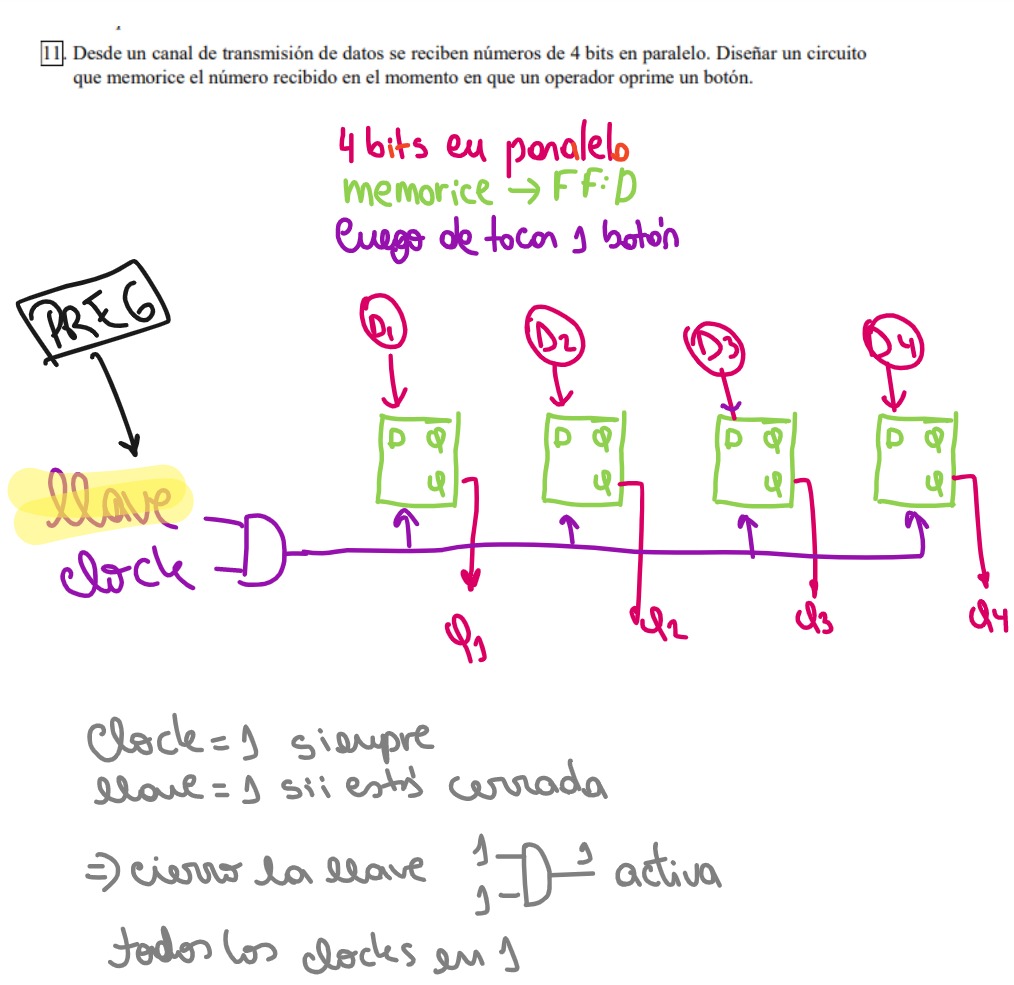 11. Desde un canal de transmisión de datos se reciben números de 4 bits en paralelo. Diseñar un circuito
que memorice el número recibido en el momento en que un operador oprime un botón.
4 bits en paralelo
memorice → FF:D
luego de tocar 1 botón
PREG
D1 D2 D3 D4
D Q D Q D Q D Q
Q Q Q Q
llave
clock
Q1 Q2 Q3 Q4
Clock = 1 siempre
llave = 1 sii está cerrada
⇒ cierro la llave 1 1 1 activa
todos los clocks en 1